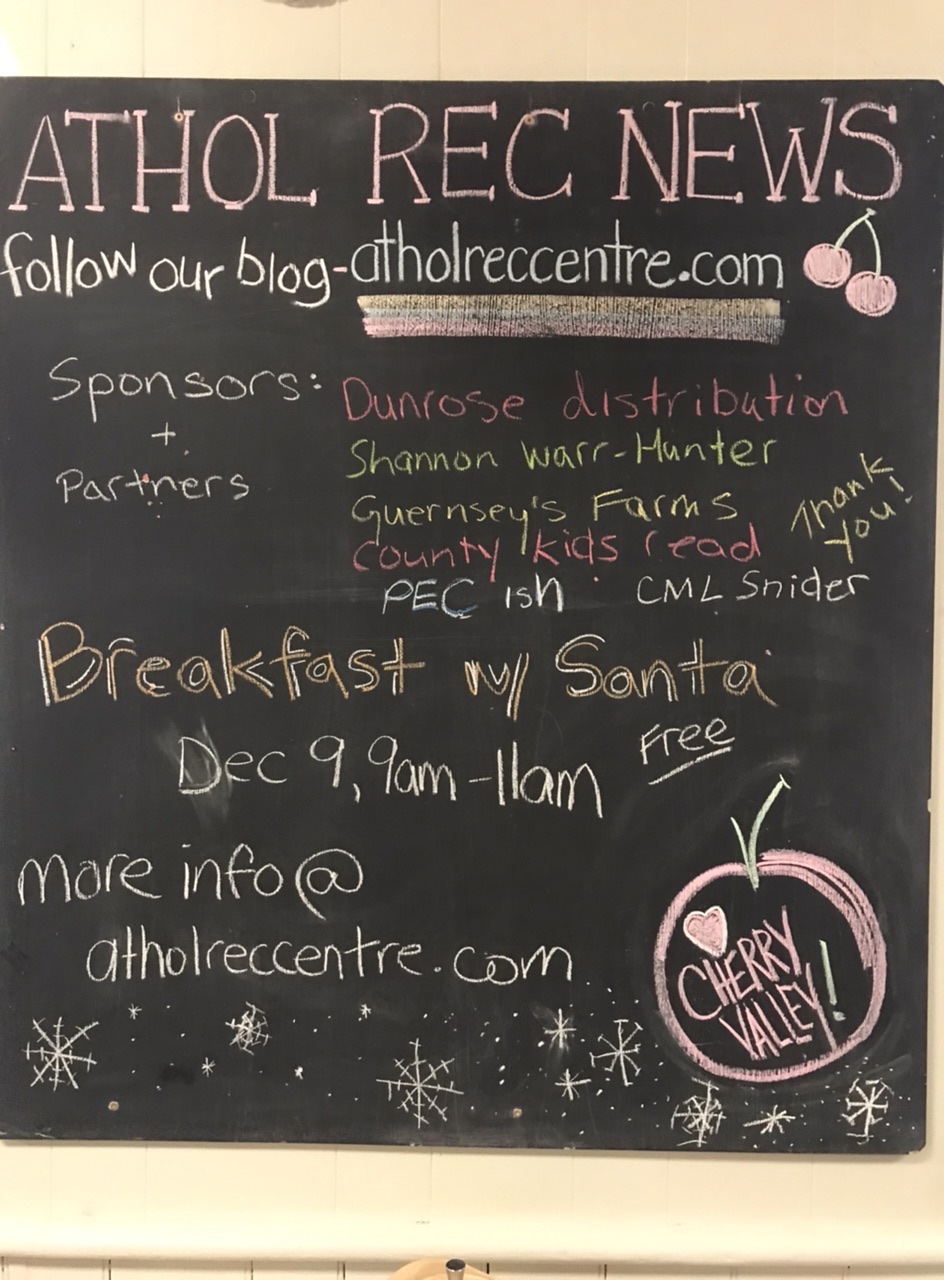 ATHOL REC NEWS
follow our blog-atholreccentre.com
Sponsors:
+
Partners
Dunrose distribution
Shannon Warr-Hunter
Guernsey's Farms
County kids read
PEC ish CML Snider
Thank
You!
Breakfast w/ Santa
Dec 9, 9am-11am
Free
more info@
atholreccentre.com
CHERRY
VALLEY!